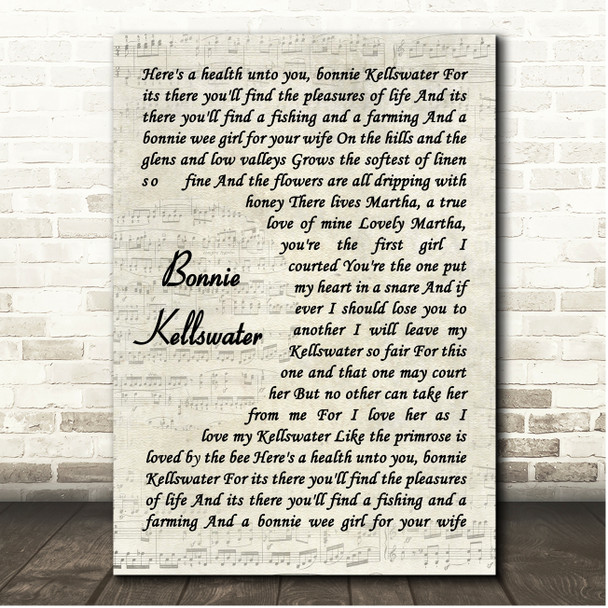 Here's a health unto you, bonnie Kellswater For
its there you'll find the pleasures of life And its
there you'll find a fishing and a farming And a
bonnie wee girl for your wife On the hills and the
glens and low valleys Grows the softest of linen
so fine And the flowers are all dripping with
honey There lives Martha, a true
love of mine Lovely Martha,
you're the first girl I
courted You're the one put
my heart in a snare And if
ever I should lose you to
another I will leave my
Kellswater so fair For this
one and that one may court
her But no other can take her
from me For I love her as I
love my Kellswater Like the primrose is
loved by the bee Here's a health unto you, bonnie
Kellswater For its there you'll find the pleasures
of life And its there you'll find a fishing and a
farming And a bonnie wee girl for your wife
Bonnie
Kellswater